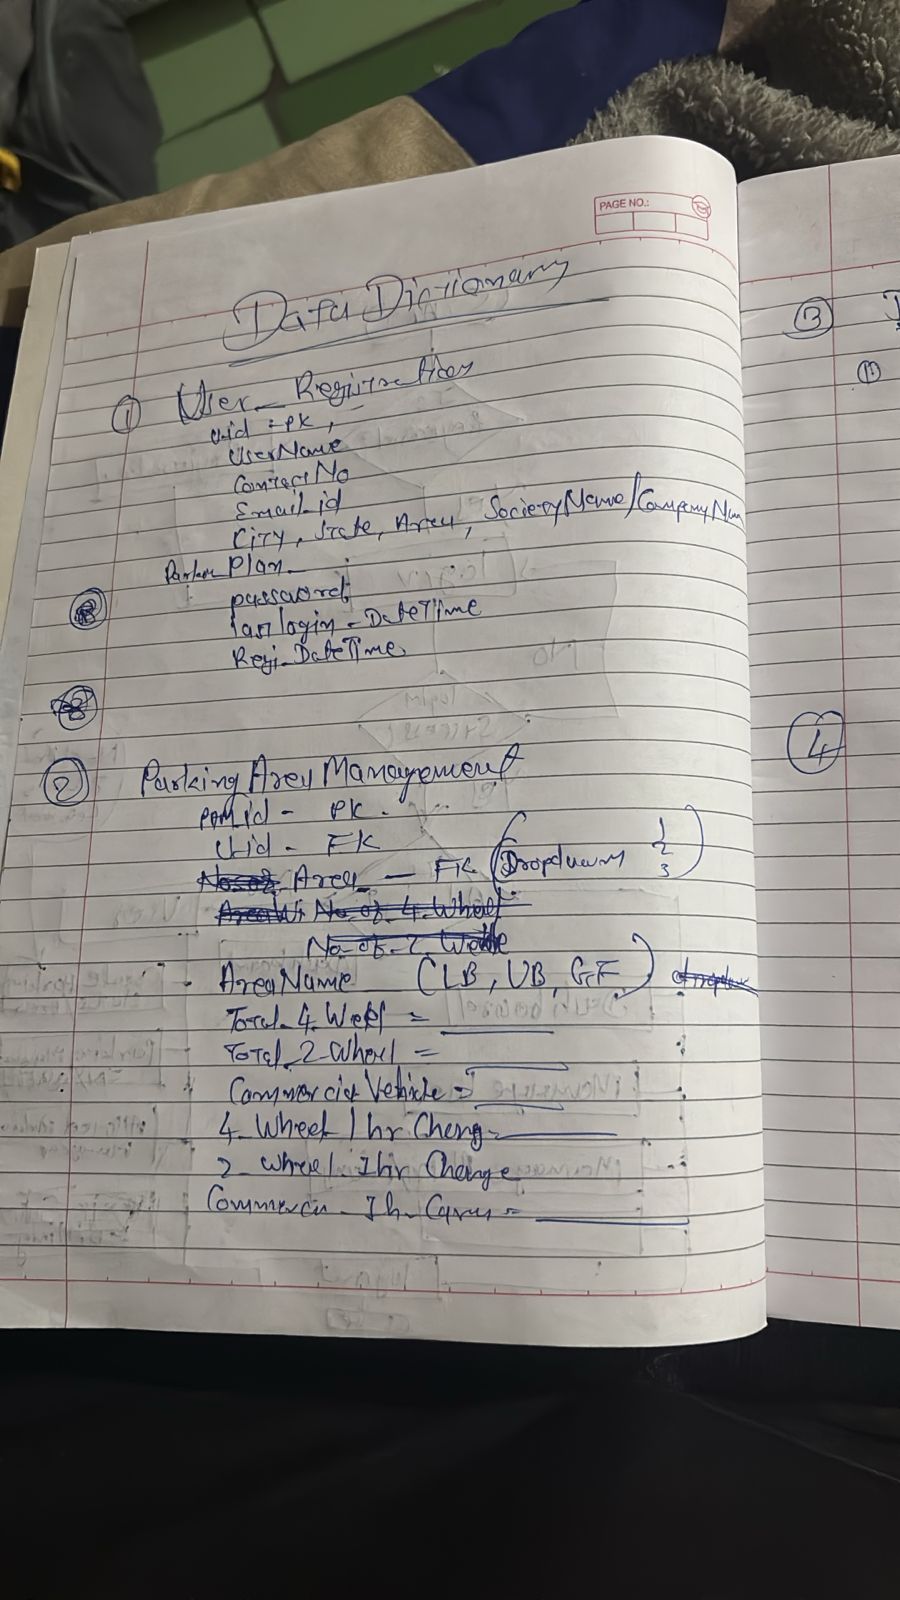 PAGE NO.:
Data Dictionary
1 User_Registration
U-id = PK,
UserName
ContactNo
Email-id
City, State, Area, SocietyName/CompanyNam
Plan
password
last login - DateTime
Regi-DateTime
2 Parking Area Management
PAMid - PK.
U-id - FK
No of Area - FK (Dropdown 1
2
3)
No-of-4-Wheel
No-of-2-
AreaName (LB, UB, GF)
Total-4-Weel =
Total-2-Wheel =
Commercial Vehicle =
4-Wheel 1hr Charg -
2-Wheel 1hr Charge
Commercia - 1h -
3
11
4